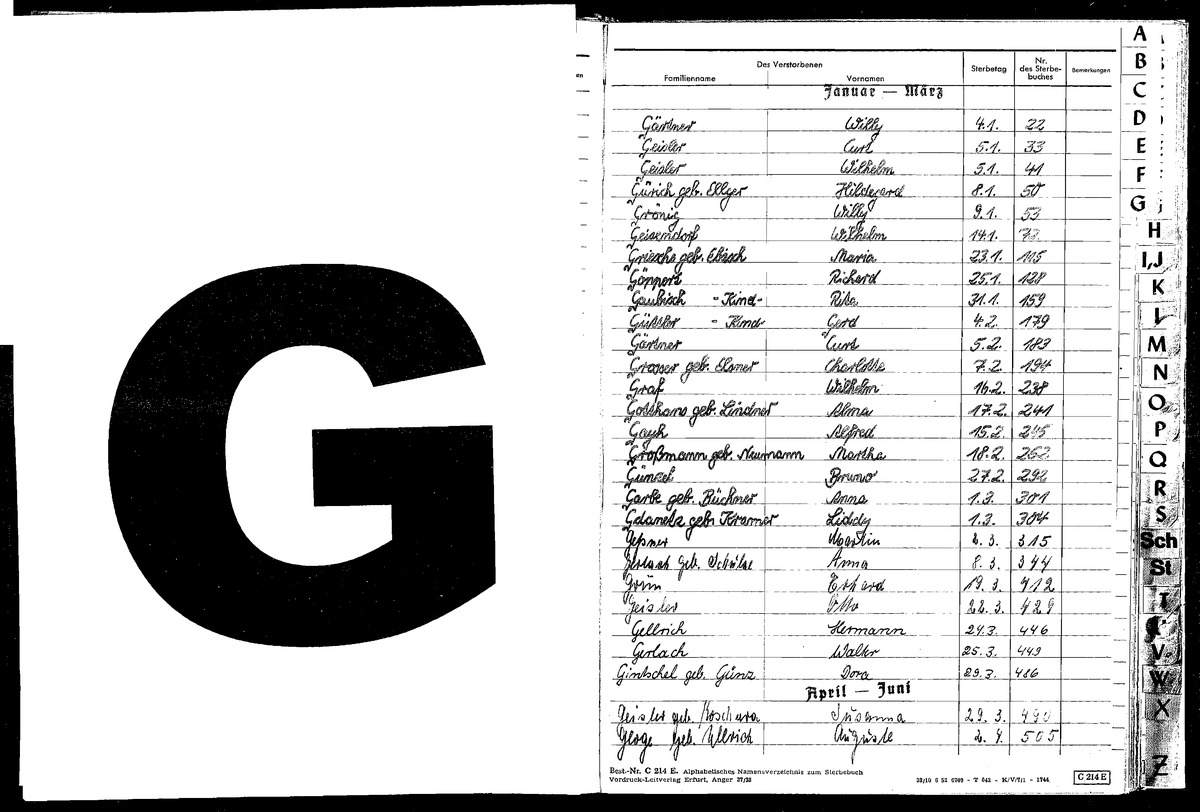 G
Des Verstorbenen
Familienname Vornamen Sterbetag Nr. des Sterbe-buches Bemerkungen
Januar — März
Gärtner Willy 4.1. 22
Geisler Curt 5.1. 33
Geisler Wilhelm 5.1. 41
Gürich geb. Ellger Hildegard 8.1. 50
Grönig Willy 9.1. 53
Geisendorf Wilhelm 14.1. 73
Griesche geb. Ebisch Maria 23.1. 115
Göppert Richard 25.1. 128
Gaubisch - Kind- Rita 31.1. 159
Güttler - Kind- Gerd 4.2. 179
Gärtner Curt 5.2. 183
Grosser geb. Elsner Charlotte 7.2. 194
Graf Wilhelm 16.2. 238
Gotthans geb. Lindner Alma 17.2. 241
Gayk Alfred 15.2. 245
Großmann geb. Neumann Martha 18.2. 262
Günzel Bruno 27.2. 292
Garbe geb. Büchner Anna 1.3. 301
Gdanetz geb. Kramer Liddy 1.3. 304
Geßner Martin 2.3. 315
Gerlach geb. Schulze Anna 8.3. 344
Grün Erhard 19.3. 412
Geisler Otto 22.3. 429
Gellrich Hermann 24.3. 446
Gerlach Walter 25.3. 449
Gintschel geb. Günz Dora 29.3. 486
April — Juni
Geisler geb. Susanna 29.3. 490
George geb. Ullrich Auguste 2.4. 505
Best.-Nr. C 214 E. Alphabetisches Namensverzeichnis zum Sterbebuch
Vordruck-Leitverlag Erfurt, Anger 37/38
C 214 E
A
B
C
D
E
F
G
H
I,J
K
L
M
N
O
P
Q
R
S
Sch
St
T
V
W
X
Z